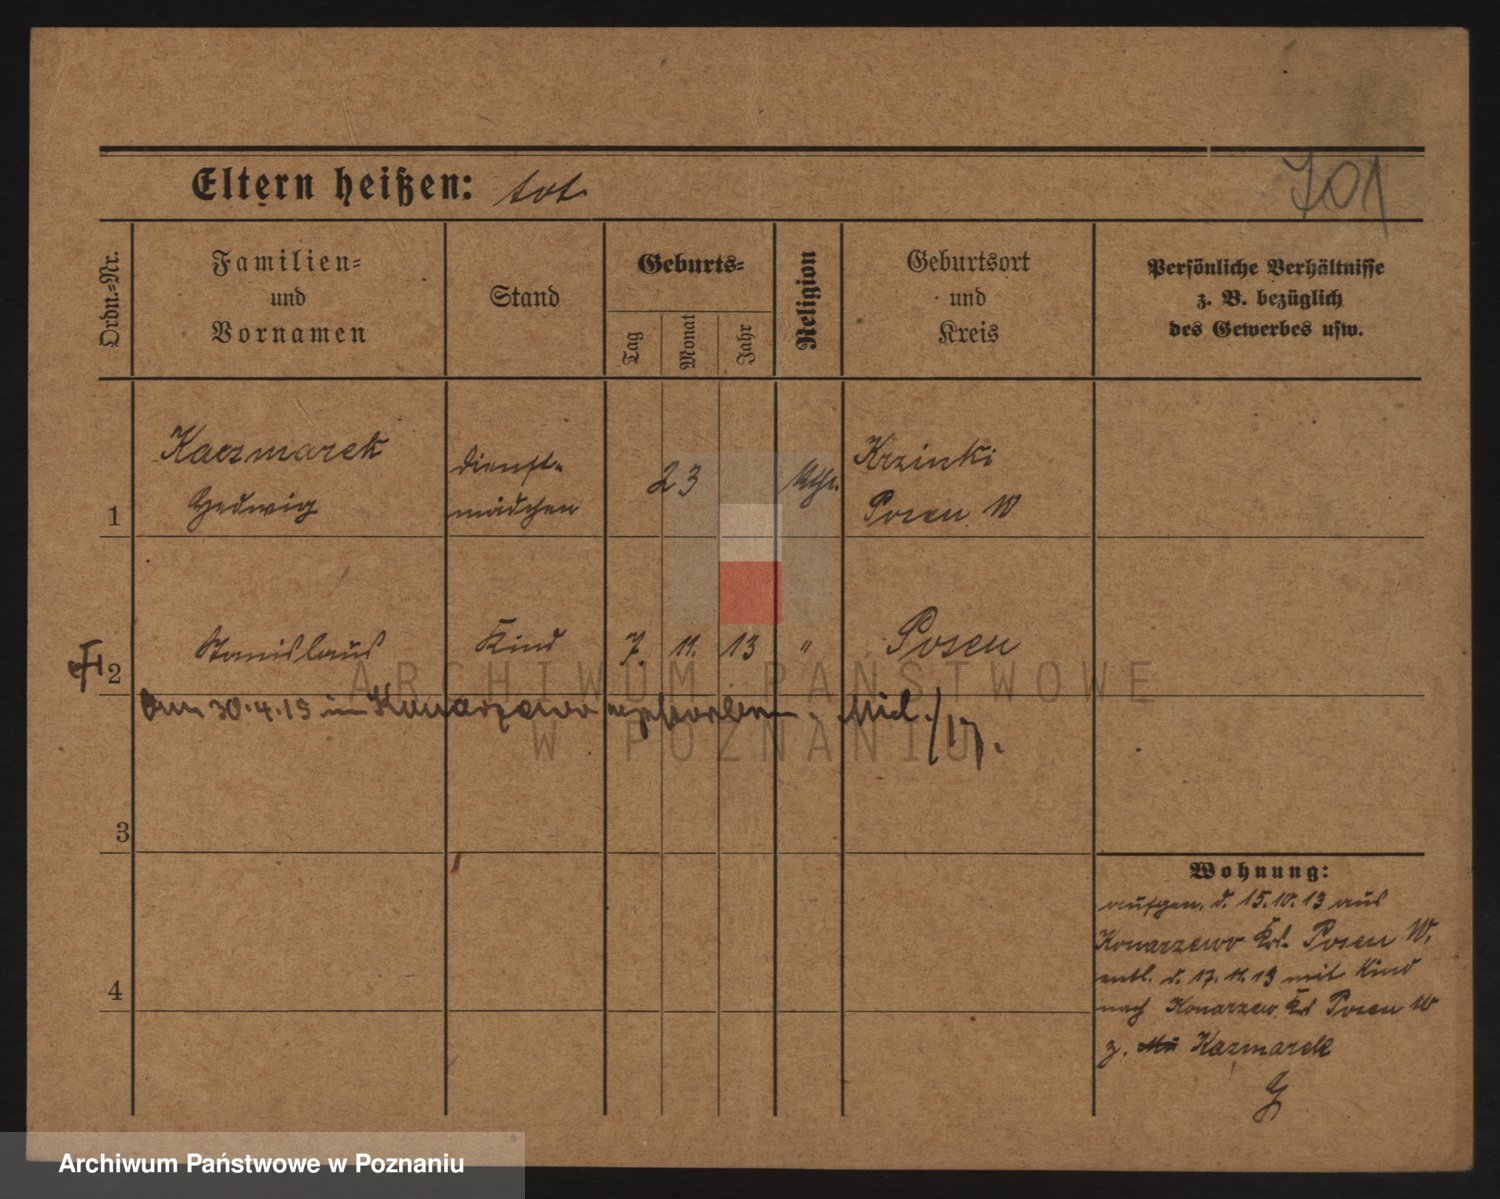 701
Eltern heißen: tot
Ordn.-Nr.
Familien-
und
Vornamen
Stand
Geburts-
Tag
Monat
Jahr
Religion
Geburtsort
und
Kreis
Persönliche Verhältnisse
z. B. bezüglich
des Gewerbes usw.
1
Kaczmarek
Hedwig
Dienst-
mädchen
23
Kth.
Krzinki
Posen W
2
Stanislaus
Kind
7. 11. 13
"
Posen
am 30.4.15 in Konarzewo verstorben. /17.
3
4
Wohnung:
aufgen. d. 15.10.13 aus
Konarzewo Krs. Posen W.
entl. d. 17.11.13 mit Kind
nach Konarzewo Krs Posen W
z. Kazmarek
ARCHIWUM PAŃSTWOWE
W POZNANIU
Archiwum Państwowe w Poznaniu